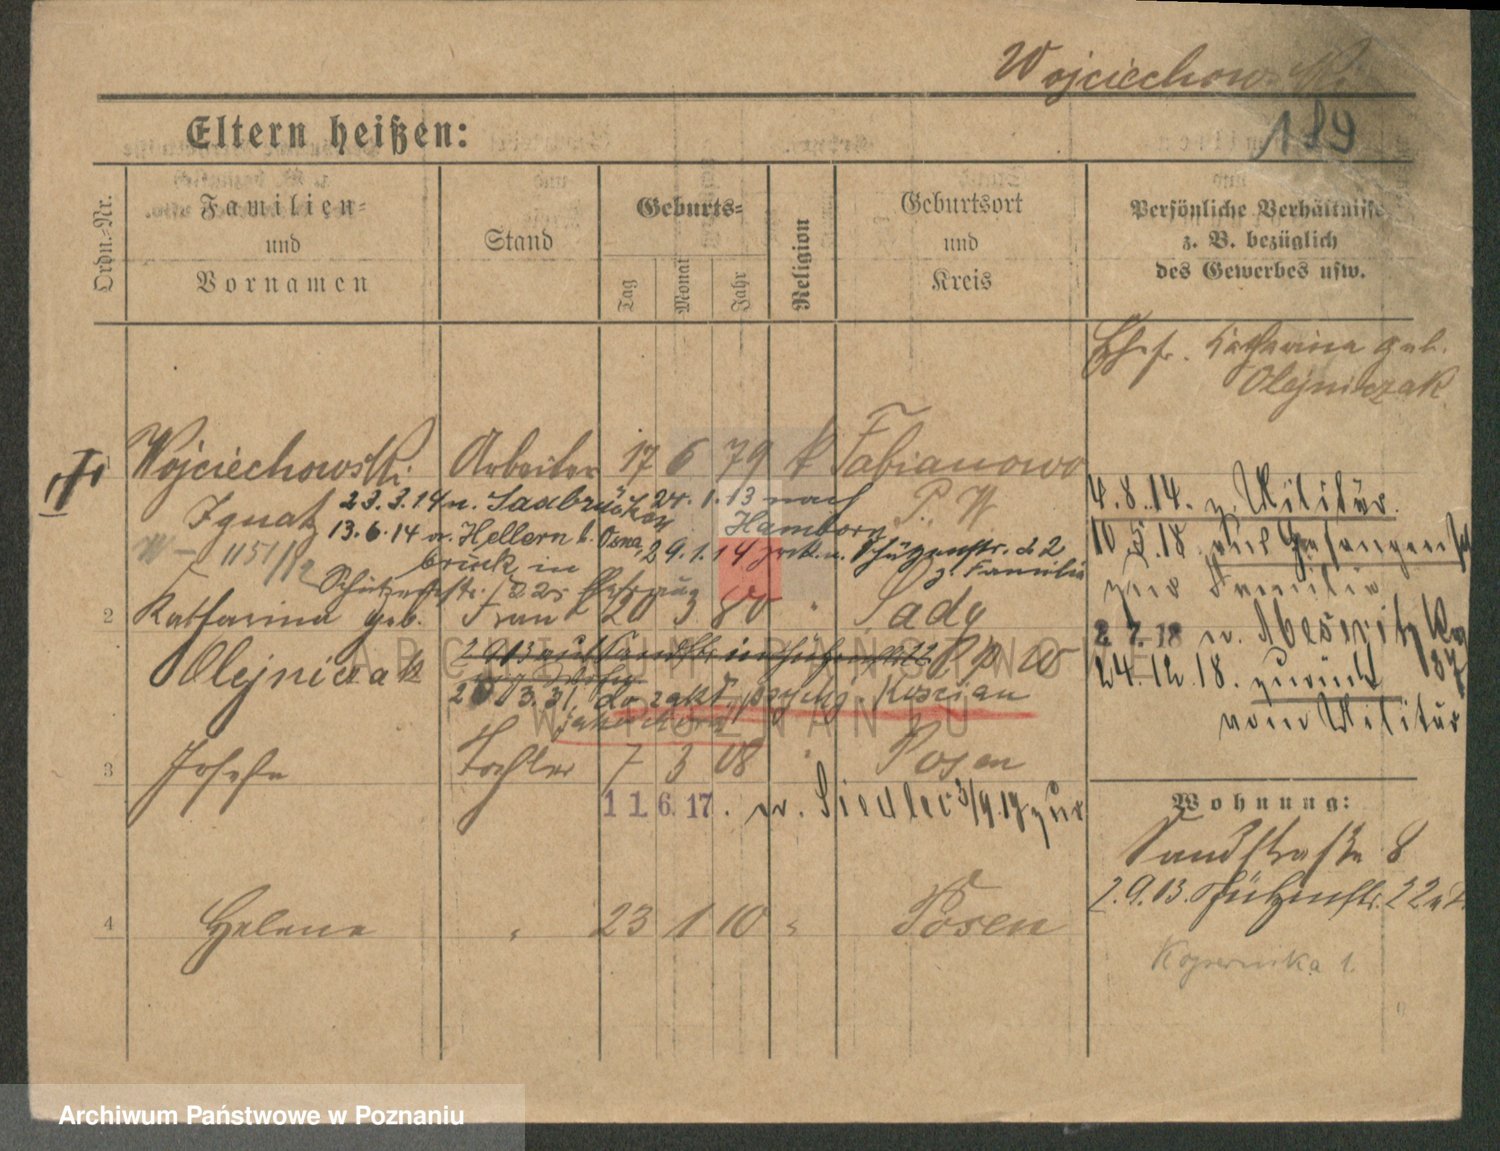 Wojciechowski
189
Eltern heißen:
Ordn.-Nr.
Familien-
und
Vornamen
Stand
Geburts-
Tag
Monat
Jahr
Religion
Geburtsort
und
Kreis
Persönliche Verhältnisse
z. B. bezüglich
des Gewerbes usw.
Ehefr. Katharina geb.
Olejniczak
Wojciechowski Arbeiter 17 6 79 k Fabianowo
Ignatz 23.3.14 n. Saabrücken 24.1.13 nach P. W.
13.6.14 v. Hellern b. Osna- Hamborn
brück in 29.1.14 zrk. n. Schützenstr. 22
1151/12 z. Familie
2 Katharina geb. Frau 20 3 80 " Sady
Olejniczak P. W
3.31. do zakł. psych. Kościan
3 Josefa Tochter 7 3 08 " Posen
11.6.17. n. Siedlec 3/9.17 zur
4 Helene " 23 1 10 " Posen
4.8.14. z. Militär.
10.5.18. aus Gefangensch
zur Familie
2.7.18 n. Meseritz
24.12.18. zurück
vom Militär
Wohnung:
Sandstraße 8
2.9.13. Schützenstr. 22
Kopernika 1.
ARCHIWUM PAŃSTWOWE
W POZNANIU
Archiwum Państwowe w Poznaniu